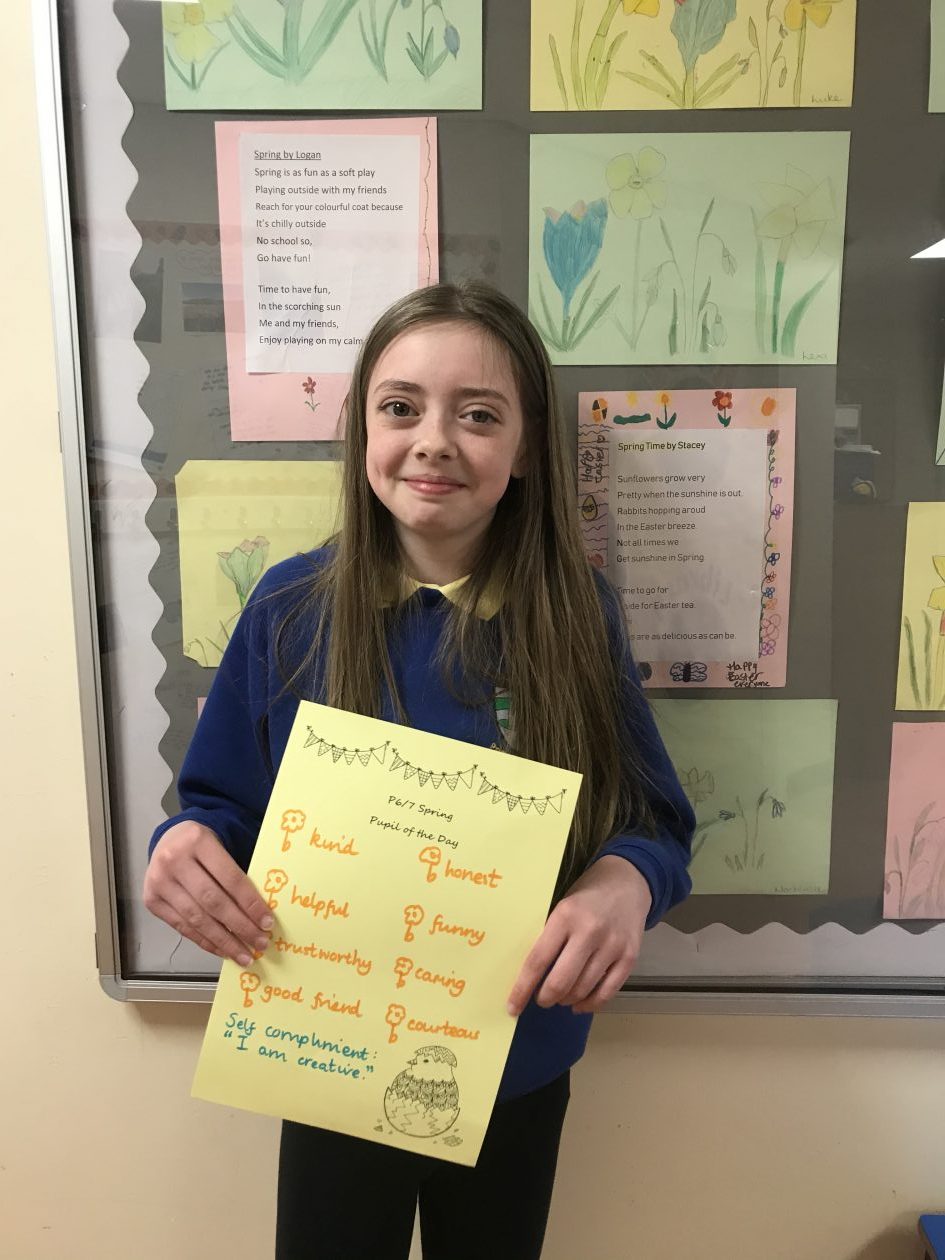 Luke
Spring by Logan
Spring is as fun as a soft play
Playing outside with my friends
Reach for your colourful coat because
It's chilly outside
No school so,
Go have fun!
Time to have fun,
In the scorching sun
Me and my friends,
Enjoy playing on my calm
Happy
Easter
Spring Time by Stacey
Sunflowers grow very
Pretty when the sunshine is out.
Rabbits hopping aroud
In the Easter breeze.
Not all times we
Get sunshine in Spring
Time to go for
for Easter tea.
are as delicious as can be.
Happy
Easter
everyone
P6/7 Spring
Pupil of the Day
kind
honest
helpful
funny
trustworthy
caring
good friend
courteous
Self compliment:
"I am creative."